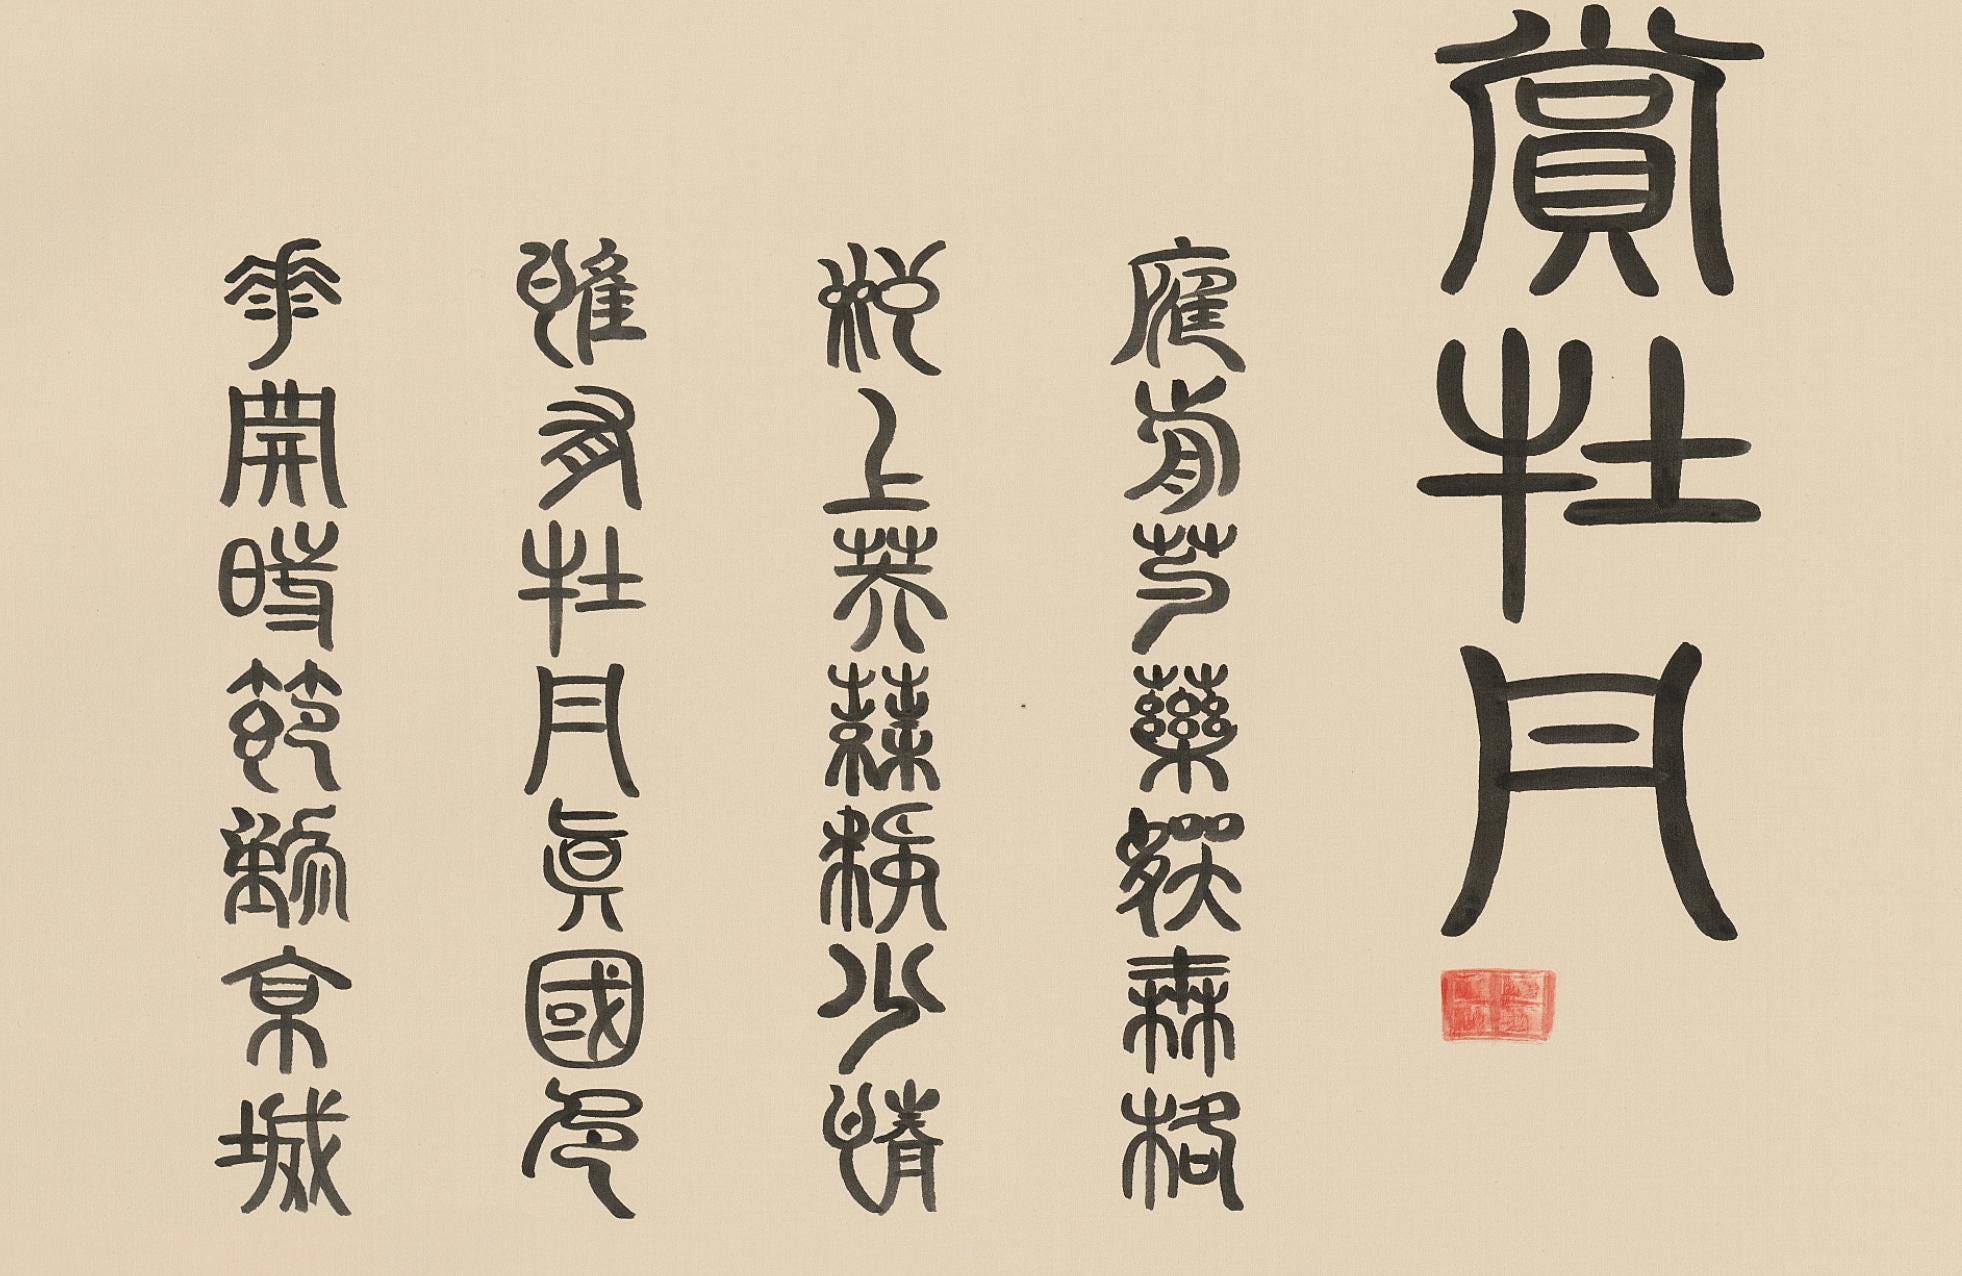 賞牡丹
庭前芍藥妖無格
池上芙蕖淨少情
惟有牡丹眞國色
華開時節動京城